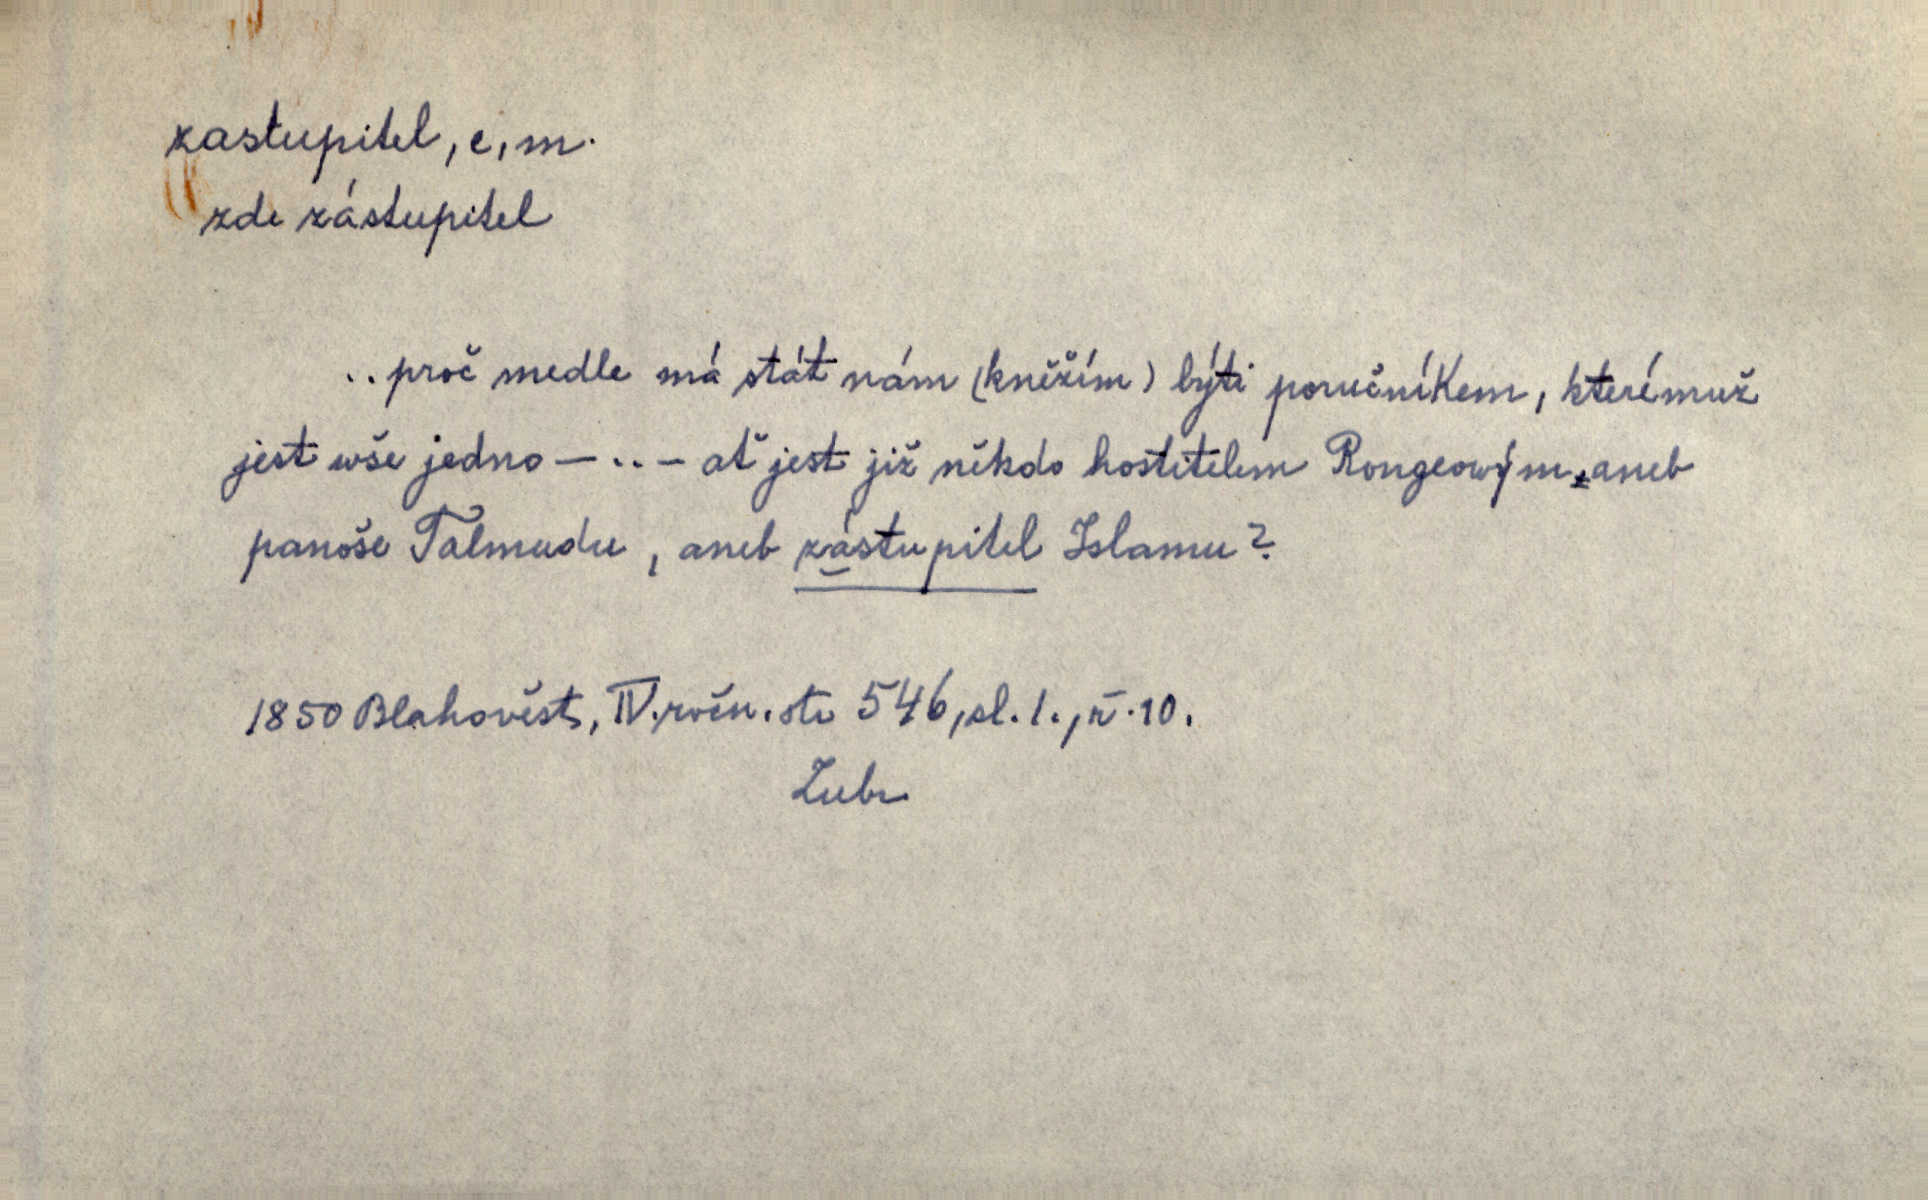 zastupitel, e, m.
zde zástupitel
.. proč medle má stát nám (kněžím) býti poručníkem, kterémuž
jest wše jedno — .. — ať jest již někdo hostitelem Rongeowým, aneb
panoše Talmudu, aneb zástupitel Islamu?
1850 Blahověst, IV. ročn. str 546, sl. 1., ř. 10.
Lubr